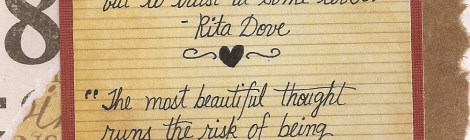 8
but to trust in some
- Rita Dove
"The most beautiful thought
runs the risk of being